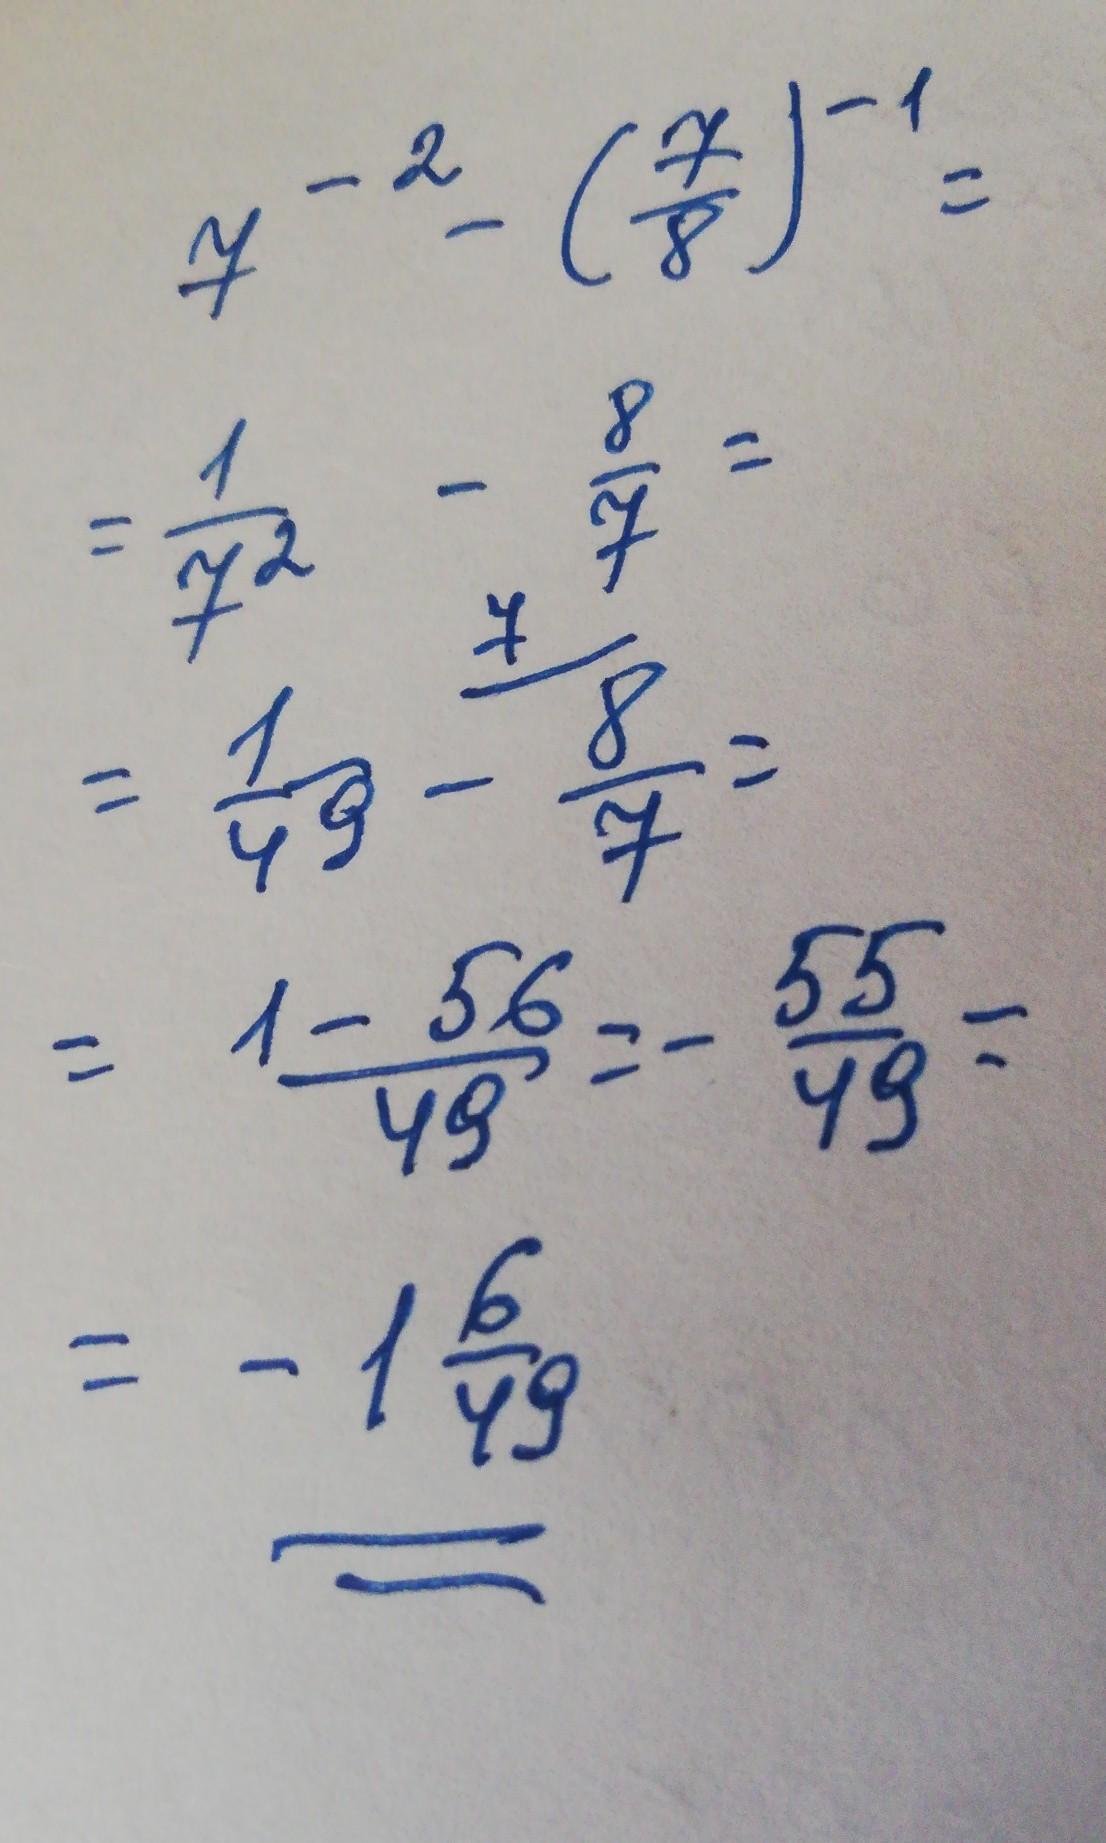 7^{-2} - (7/8)^{-1} =
= 1/7^2 - 8/7 =
= 1/49 - ^{7/} 8/7 =
= 1 - 56/49 = - 55/49 =
= - 1 6/49